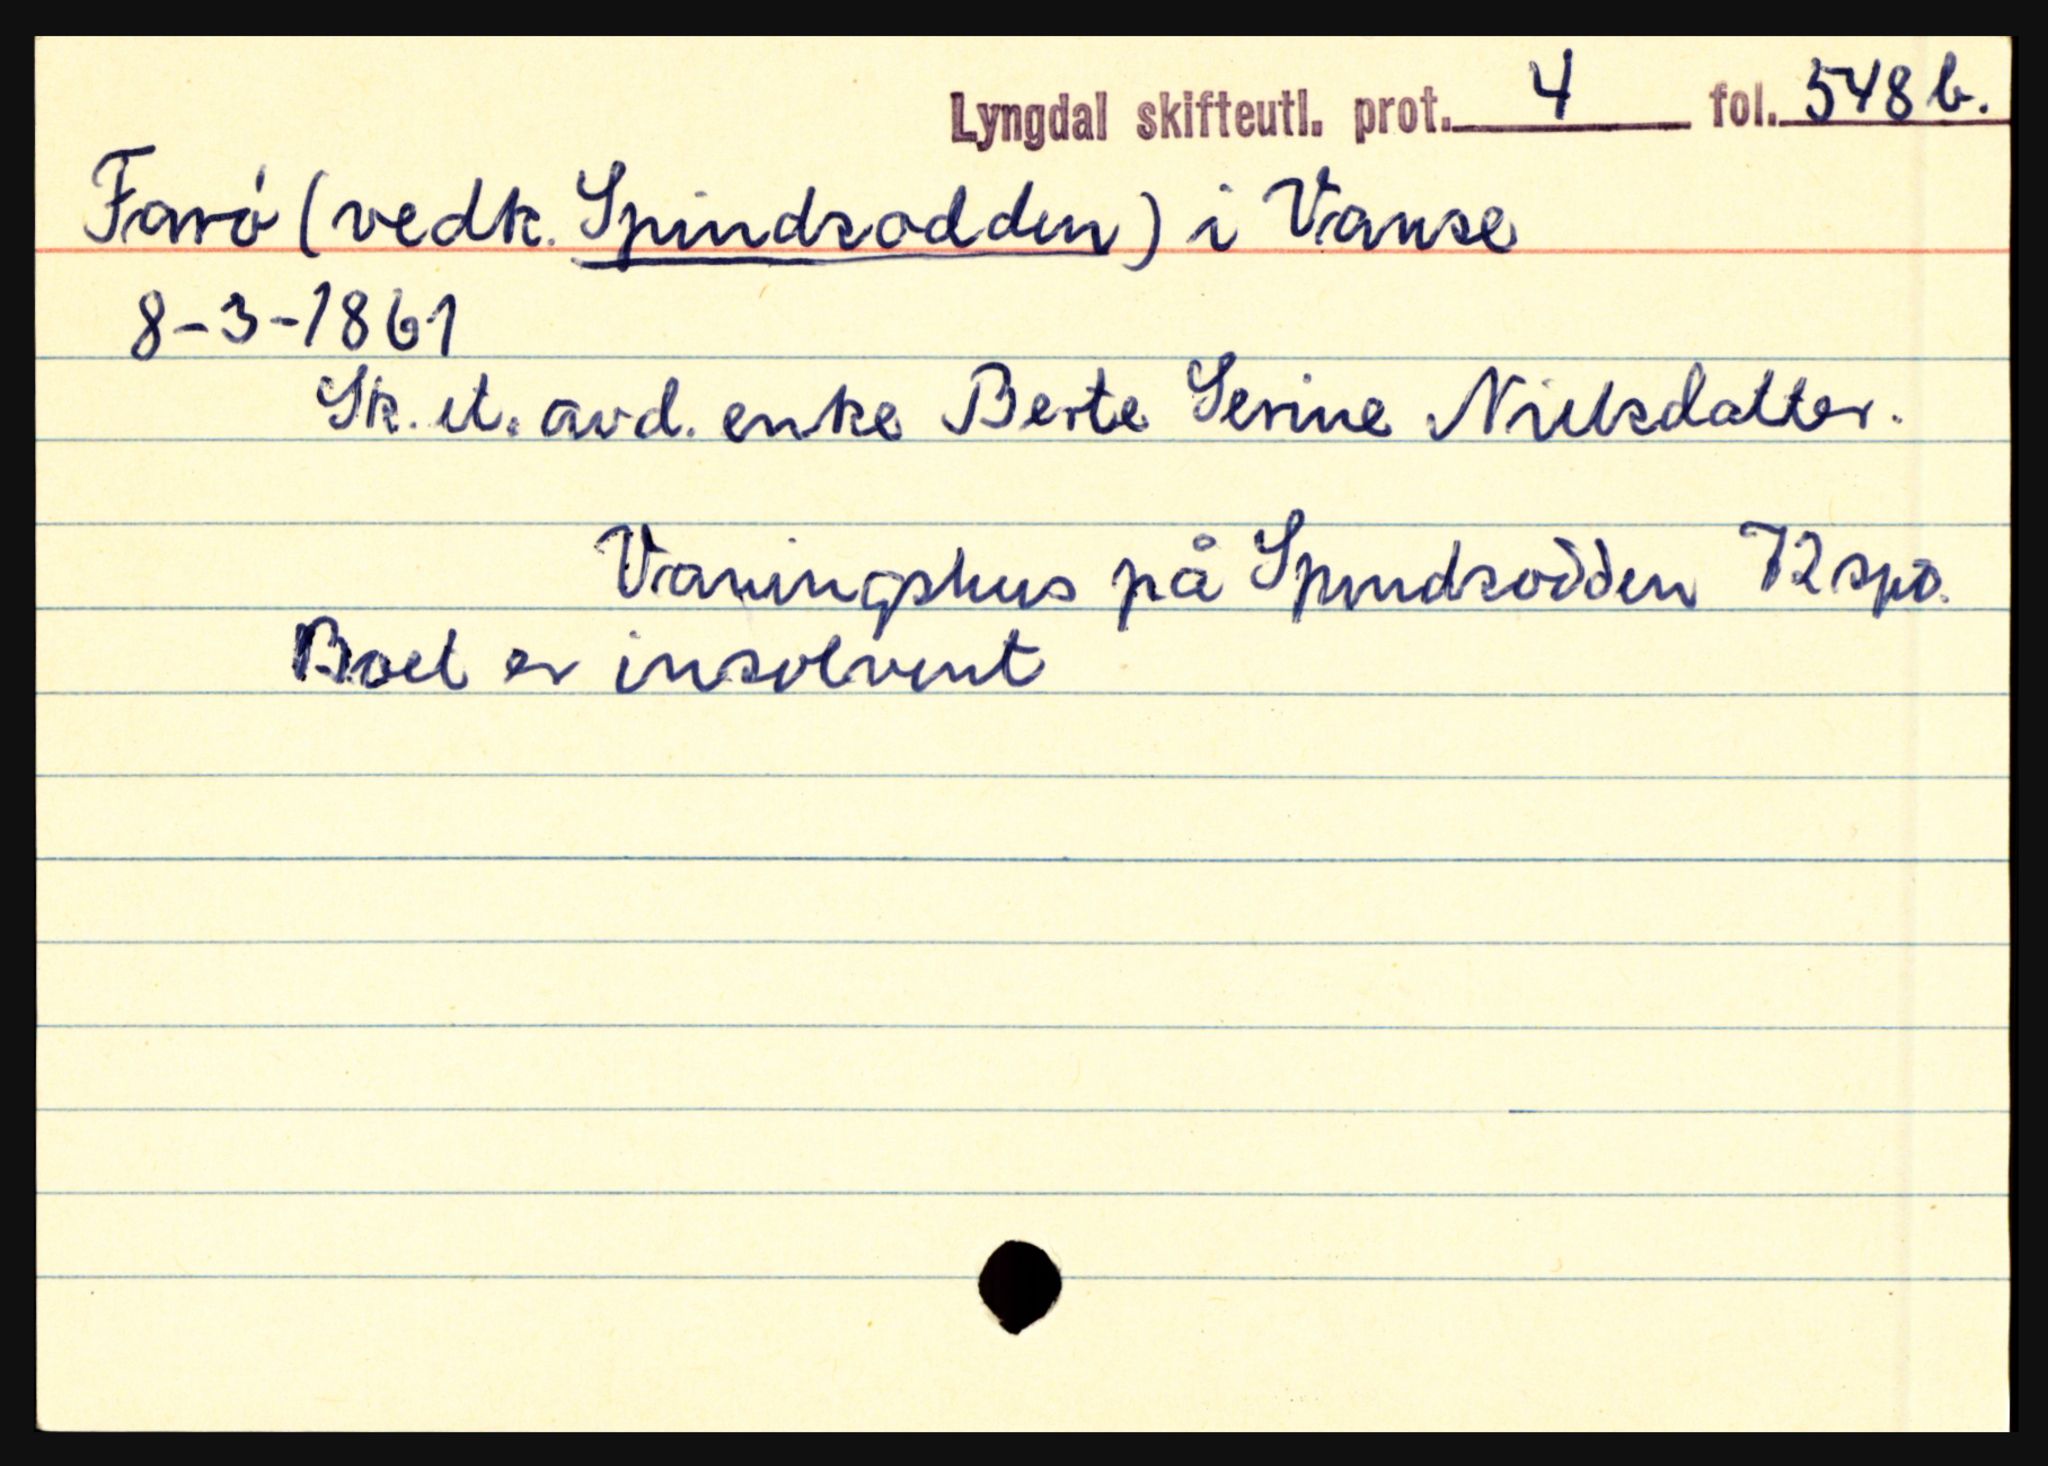 Lyngdal skifteutl. prot. 4 fol. 548 b.
Farø (vedk. Spindsodden) i Vanse
8-3-1861
Sk. et. avd. enke Berte Serine Nielsdatter.
Vaningshus på Spindsodden 72 spd.
Boet er insolvent